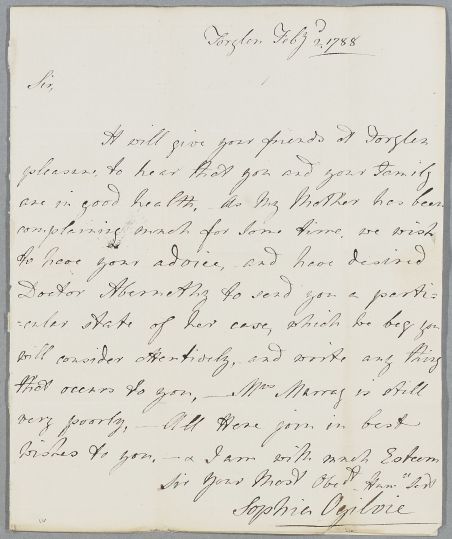 Forglen Feby 2d, 1788
Sir,
It will give your friends at Forglen
pleasure, to hear that you and your Family
are in good health, - As My Mother has been
complaining much for some time, we wish
to have your advice, - and have desired
Doctor Abernethy to send you a parti=
=cular state of her case, which we beg you
will consider attentively, and write any thing
that occurs to you, - Mrs Murray is still
very poorly, - All Here join in best
Wishes to you, - & I am with much Esteem
Sir Your Most Obedt. Humle Sert
Sophia Ogilvie